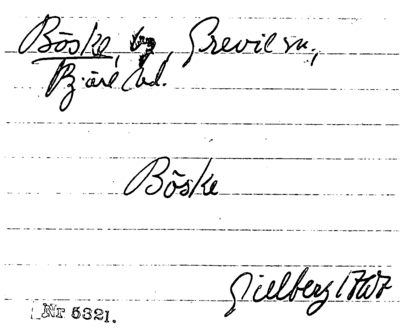 Böske, by, Grevie sn.,
Bjäre hd.
Böske
Gillberg 1767
Nr 5321.